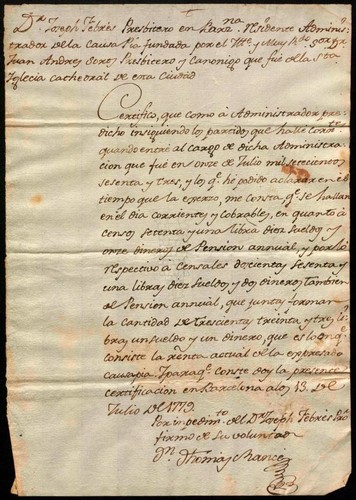 Dr. Joseph Febrès Presbitero en Barzna. residente Adminis-
trador de la Causa Pia fundada por el Itte. y Muy Rdo. Sor. Dr.
Juan Andreu Sors, Presbitero y Canonigo que fué de la Sta.
Iglecia Cathedral de esta Ciudad
Certifico, que como â Administrador pre-
dicho insiguiendo los partidos que hallè corrtes.
quando entré al cargo de dicha Administra-
cion que fué en onze de Julio mil setecientos
sesenta y tres, y los q. he podido aclarar en el
tiempo que la exerzo, me consta q. se hallan
en el dia corrientes y cobrables, en quanto à
censos, setenta y una libra diez sueldos y
onze dineros de Pension annual, y por lo
respectivo â Censales docientas sesenta y
una libras diez sueldos y dos dineros tambien
de Pension annual, que juntas forman
la cantidad de trescientas treinta y tres li-
bras, un sueldo y un dinero, que es lo en q.
consiste la renta actual de la expresada
causapia. Y paraq. conste doy la presente
certificacion en Barcelona a los 13. de
Julio de 1779.
Por impedimto. del Dr. Joseph Febrès Pbro
firmo de su voluntad